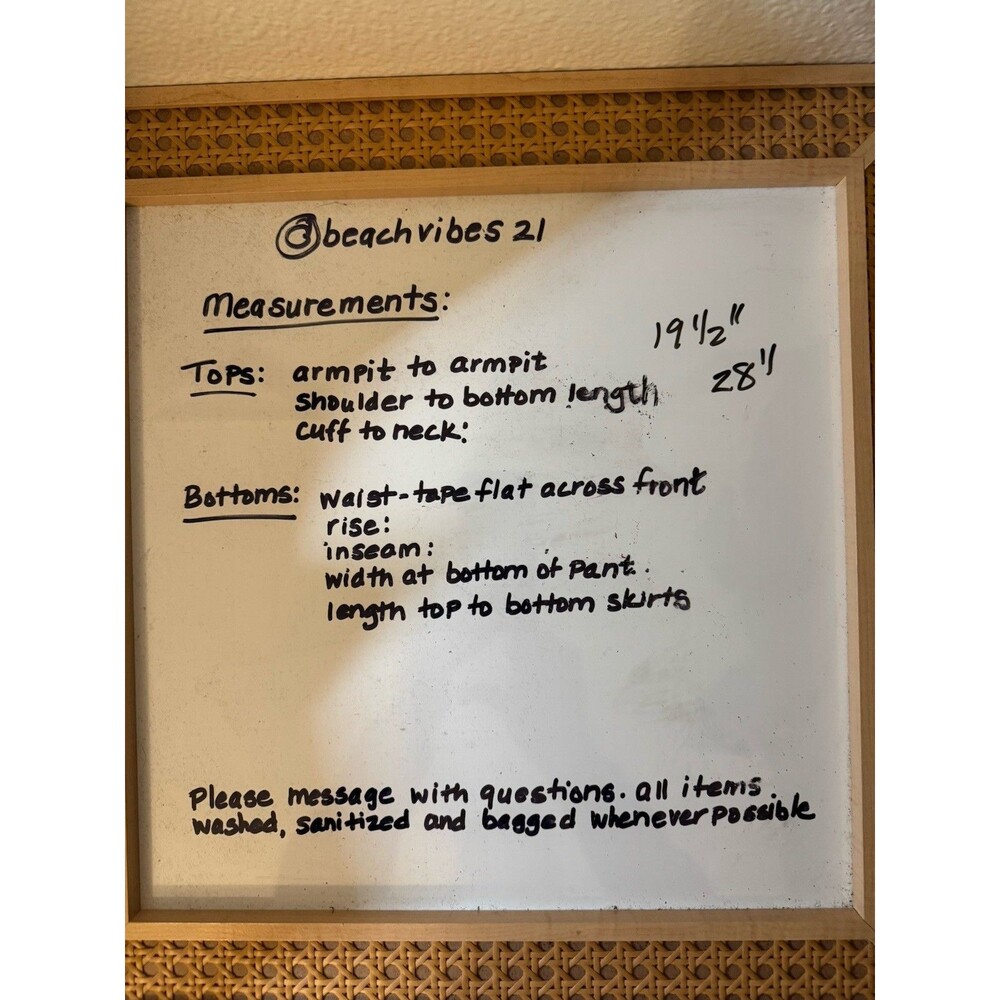 @beachvibes 21
Measurements:
Tops: armpit to armpit 19 1/2"
shoulder to bottom length 28"
cuff to neck:
Bottoms: waist-tape flat across front
rise:
inseam:
width at bottom of pant.
length top to bottom skirts
Please message with questions. all items.
washed, sanitized and bagged whenever possible